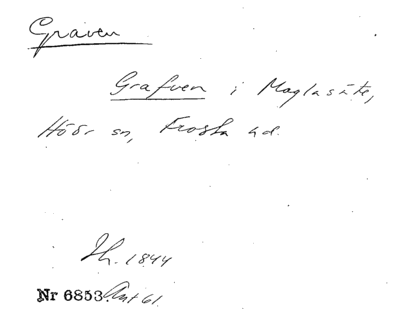 Graven
Grafven i Maglasäte,
Höör sn, Frosta hd.
Th. 1844
Nr 6853 Ant 61.